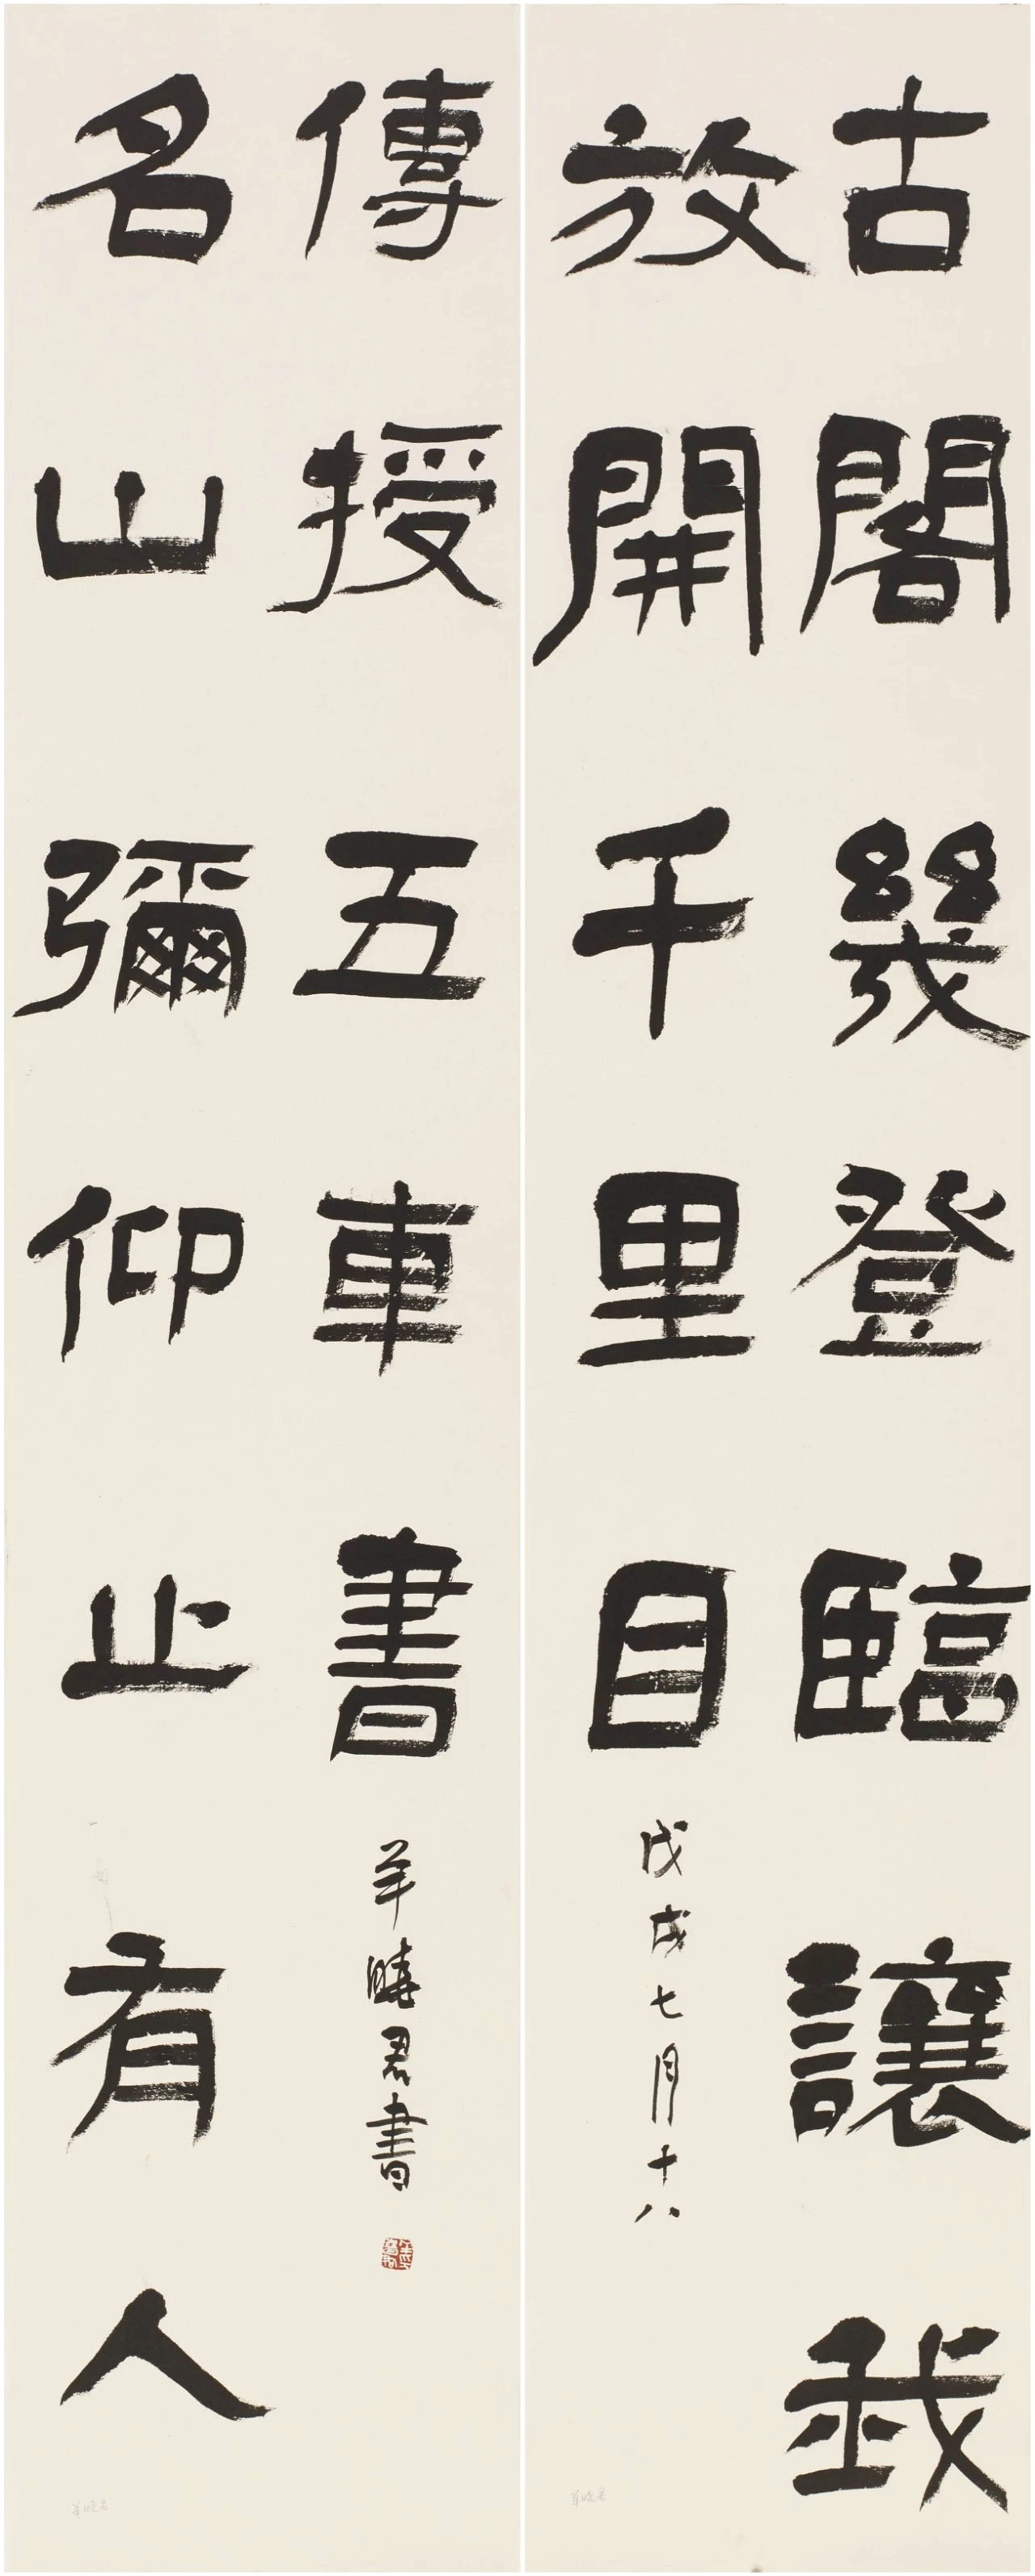 古閣幾登臨讓我
放開千里目
戊戌七月十八
名山彌仰止有人
傳授五車書
羊曉君書